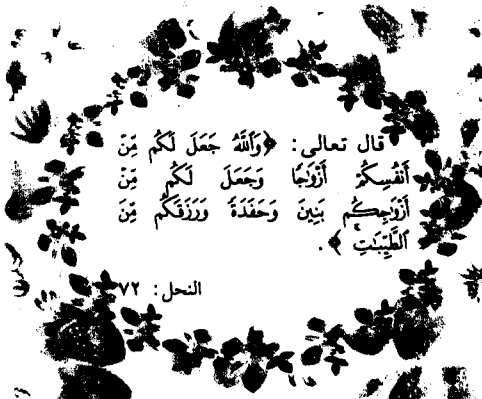 قال تعالى: ﴿وَٱللَّهُ جَعَلَ لَكُم مِّنْ
أَنفُسِكُمْ أَزْوَٰجًا وَجَعَلَ لَكُم مِّنْ
أَزْوَٰجِكُم بَنِينَ وَحَفَدَةً وَرَزَقَكُم مِّنَ
ٱلطَّيِّبَٰتِ﴾.
النحل: ٧٢